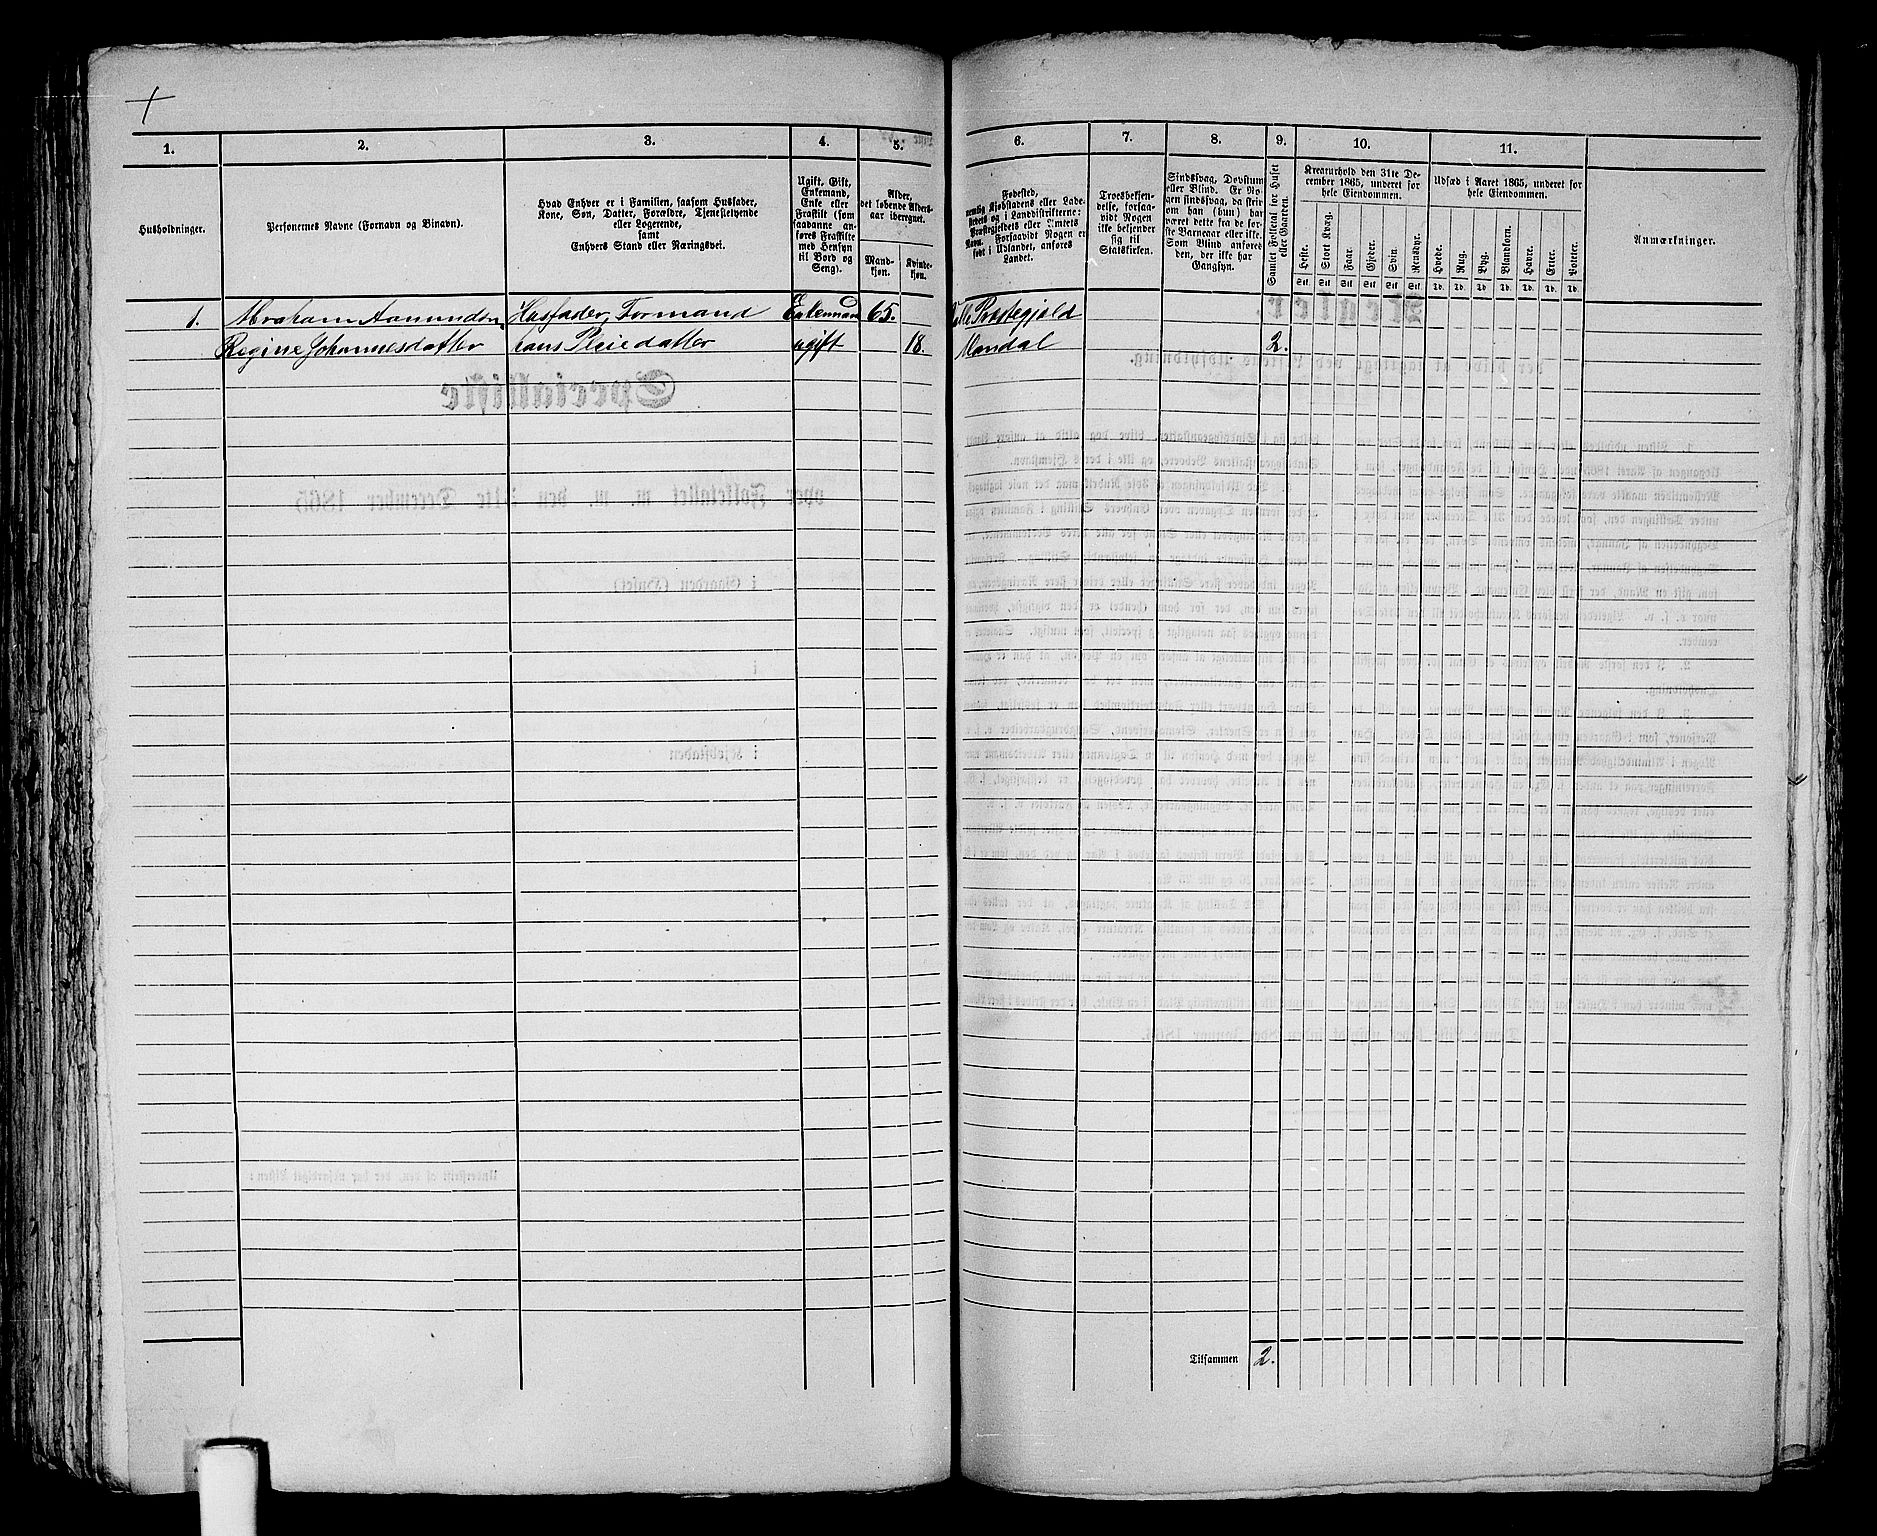 1. 2. 3. 4. 5. 6. 7. 8. 9. 10. 11.
Husholdninger.
Personernes Navne (Fornavn og Binavn).
Hvad Enhver er i Familien, saasom Husfader,
Kone, Søn, Datter, Forældre, Tjenestetyende
eller Logerende,
samt
Enhvers Stand eller Næringsvei.
Ugift, Gift,
Enkemand,
Enke eller
Fraskilt (som
saadanne an-
føres Fraskilte
med Hensyn
til Bord og
Seng).
Alder,
det løbende Alders-
aar iberegnet.
Mand-
kjøn.
Kvinde-
kjøn.
Fødested,
nemlig Kjøbstadens eller Lade-
stedets og i Landdistrikterne:
Præstegjeldets eller Sintets
Navn. Forsaavidt Nogen er
født i Udlandet, anføres
Landet.
Troesbekjen-
delse, forsaa-
vidt Nogen
ikke bekjender
sig til
Statskirken.
Sindssvag, Døvstum
eller Blind. Er No-
gen sindssvag, da skriv
om han (hun) har
været dette fra de før-
ste Barneaar eller ikke.
Som Blind anføres
den, der ikke har
Gangsyn.
Samlet Folketal for Huset
eller Gaarden.
Kreaturhold den 31te De-
cember 1865, underet for
hele Eiendommen.
Heste. Stort Kvæg. Faar. Gjeder. Svin. Rensdyr.
Stk. Stk. Stk. Stk. Stk. Stk.
Udsæd i Aaret 1865, underet for
hele Eiendommen.
Hvede. Rug. Byg. Blandkorn. Havre. Erter. Poteter.
Td. Td. Td. Td. Td. Td. Td.
Anmærkninger.
1. Abraham Aanundsen Husfader, Formand Enkemand 65. Præstegjeld
Regine Johannesdatter hans Pleiedatter ugift 18. Mandal 2.
Tilsammen 2.